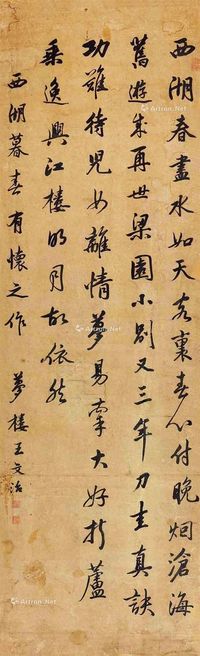 西湖春盡水如天客裏春心付晚烟滄海
舊遊成再世梁園小別又三年刀圭真訣
功難待兒女離情夢易牽大好折蘆
乘逸興江樓明月故依然
西湖暮春有懷之作　夢樓王文治